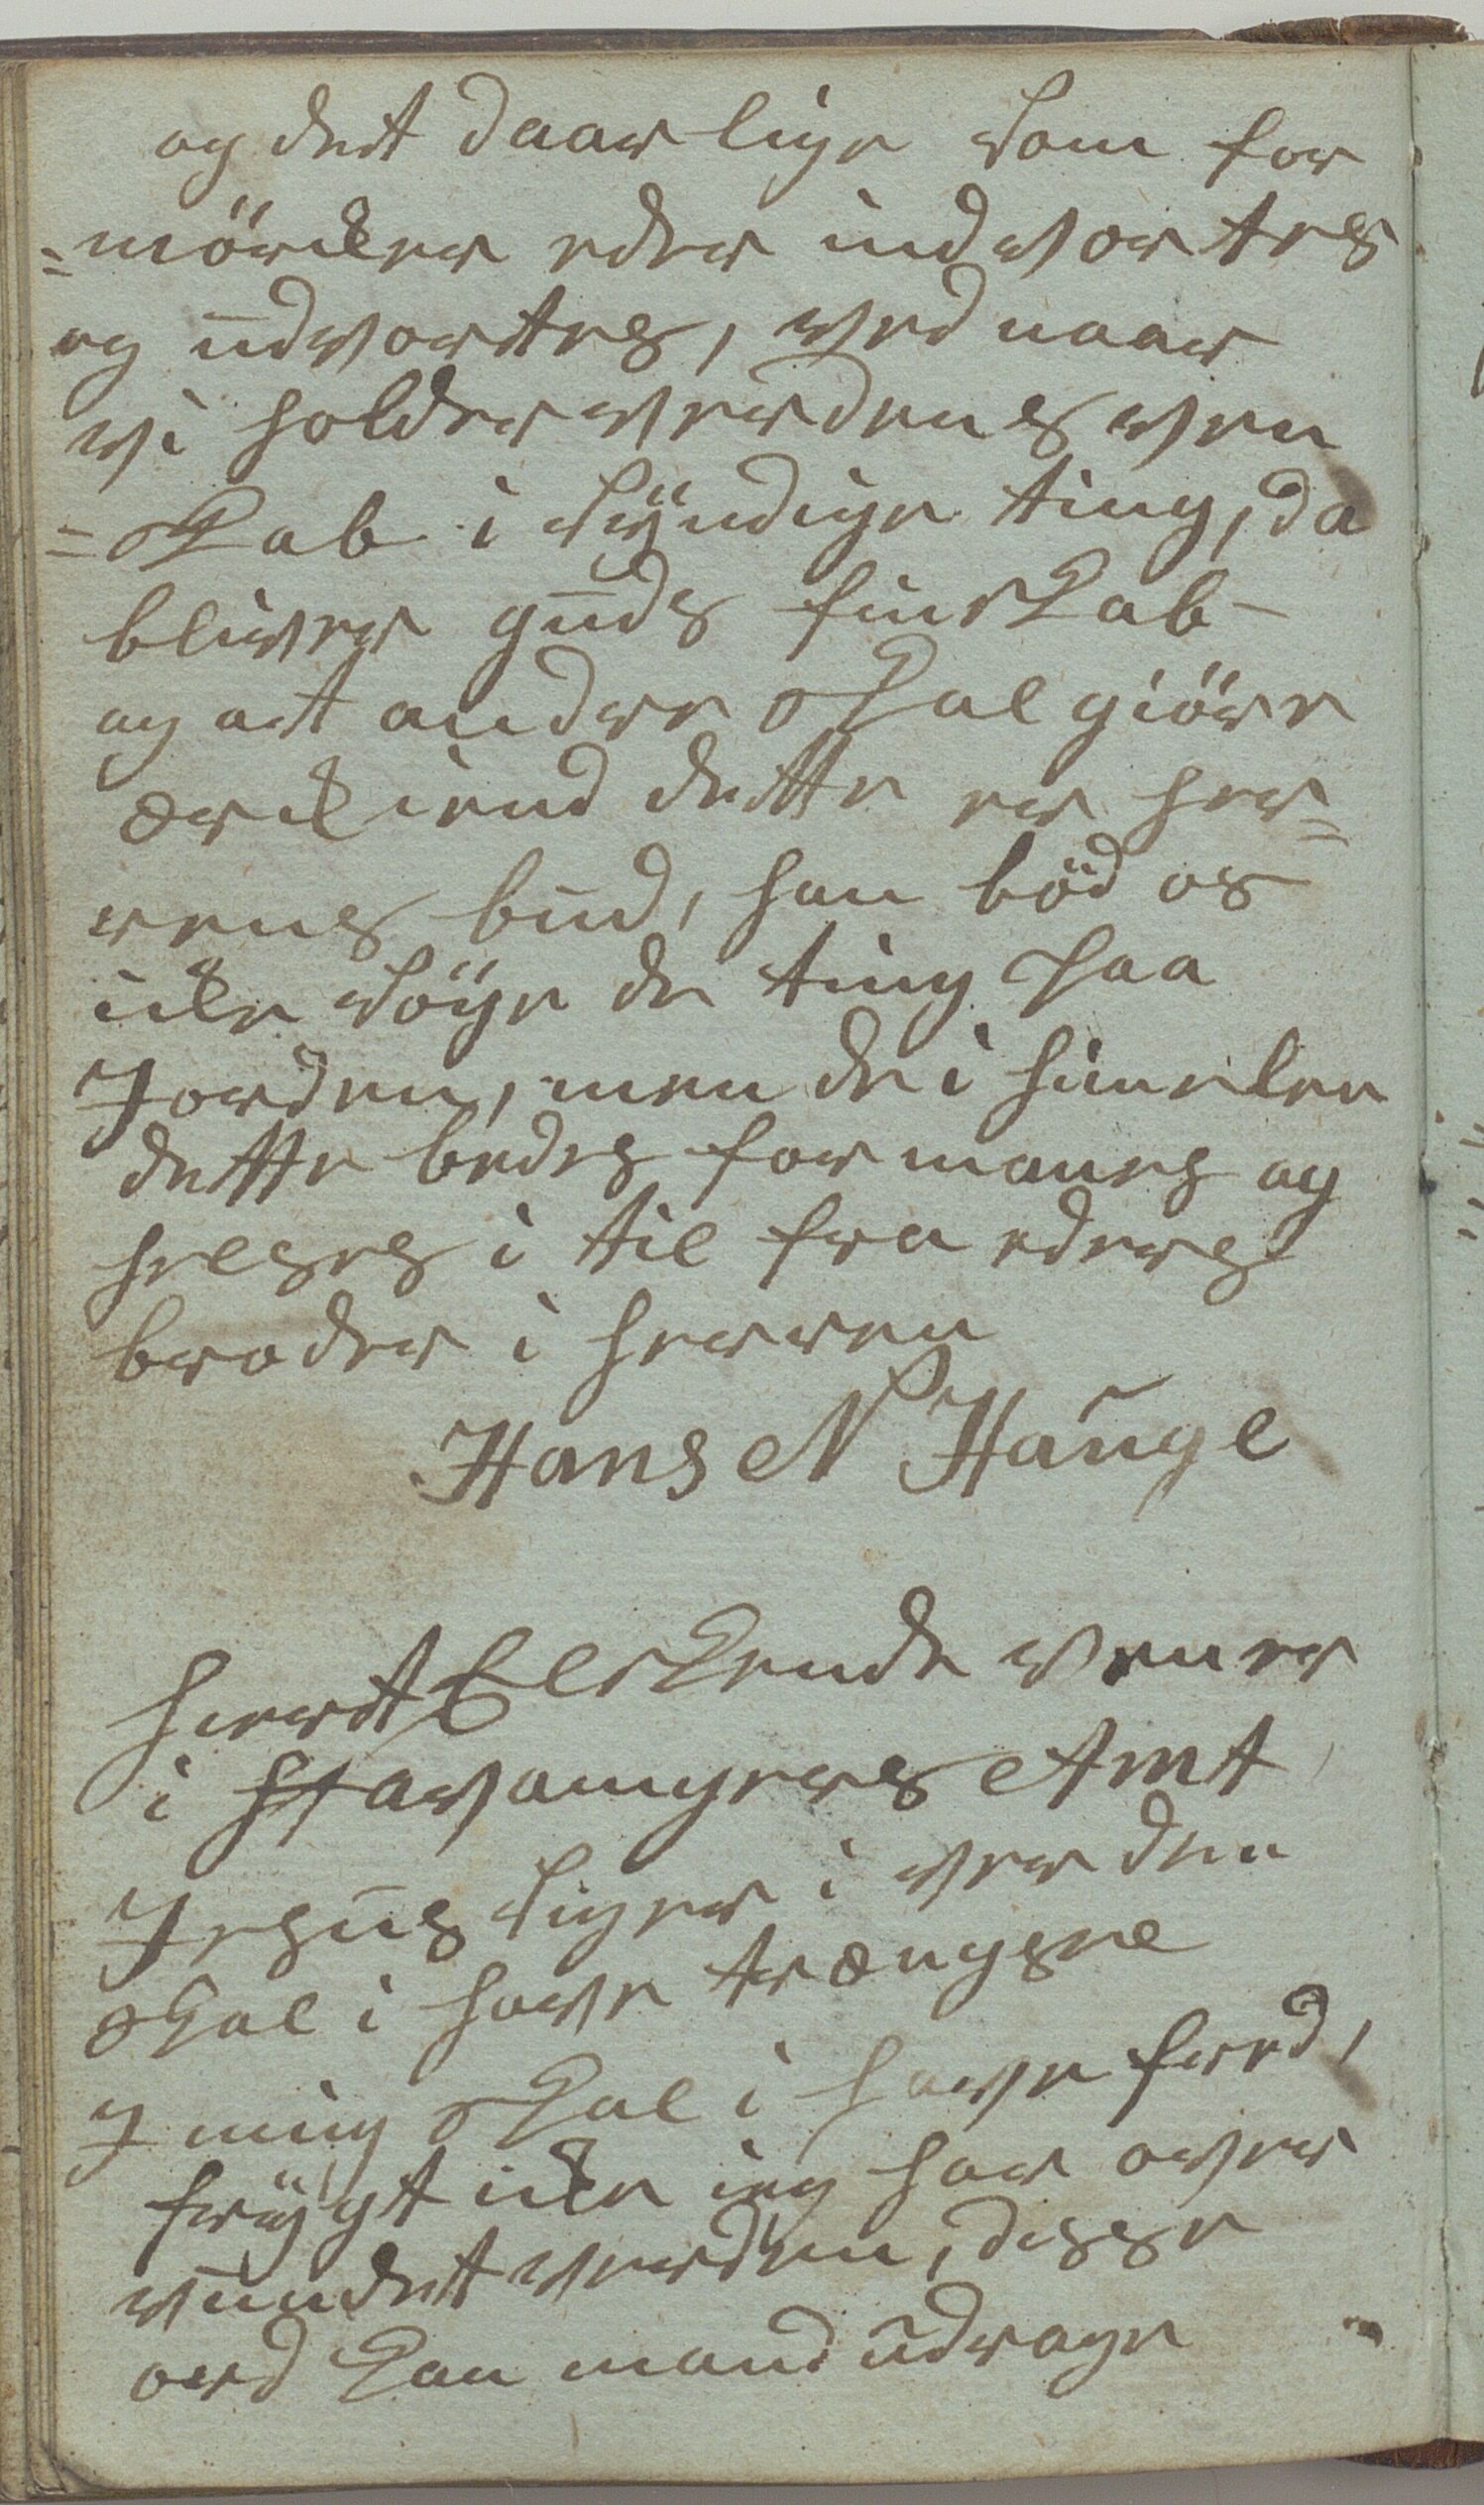 og det daarlige som for
=mörcker eder indvortes
og udvortes, ved naar
vi holder verdens ven
=skab i syndige ting, da
bliver guds finskab
og at andre skal giöre
ærckiend dette er her=
rens bud, han böd os
icke söge de ting paa
Jorden, men de i himelen
dette bedes formanes og
helses i til fra eders
broder i herren
Hans N Hauge
hiert Elskende vener
i Stavangers Amt
Jesus siger i verden
skal i have trængsel
J mig skal i have fred,
frygt icke ieg har over
vundet verden, disse
ord kan mand udrage